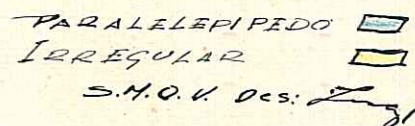 PARALELEPIPEDO
IRREGULAR
S.M.O.V. Des: